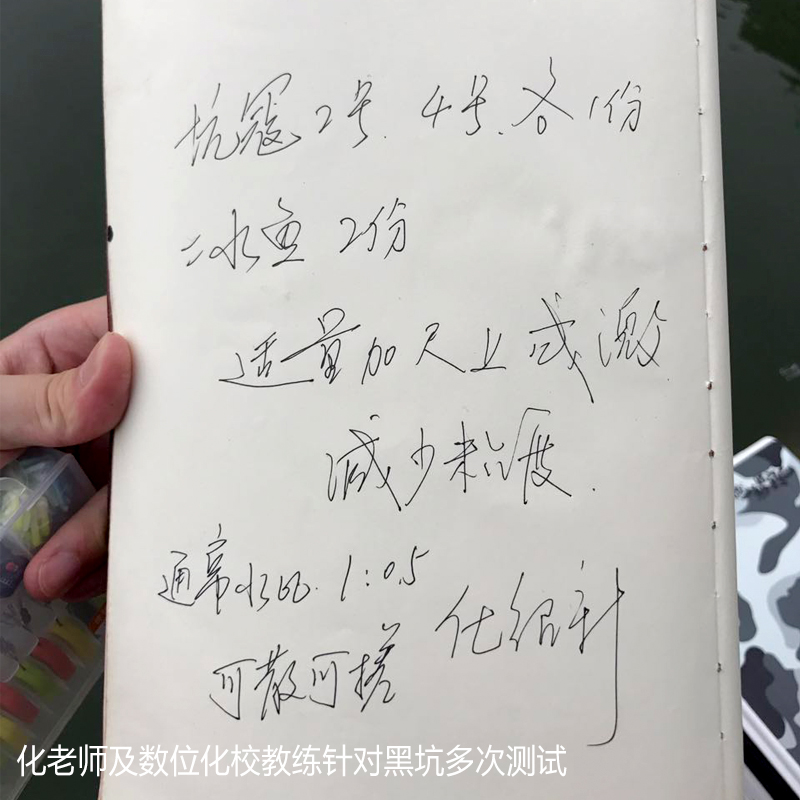 坑冠2号、4号、各1份
冰鱼2份
适量加尺上或激
减少粘度.
通常水比 1:0.5
可散可搓
化绍新
化老师及数位化校教练针对黑坑多次测试